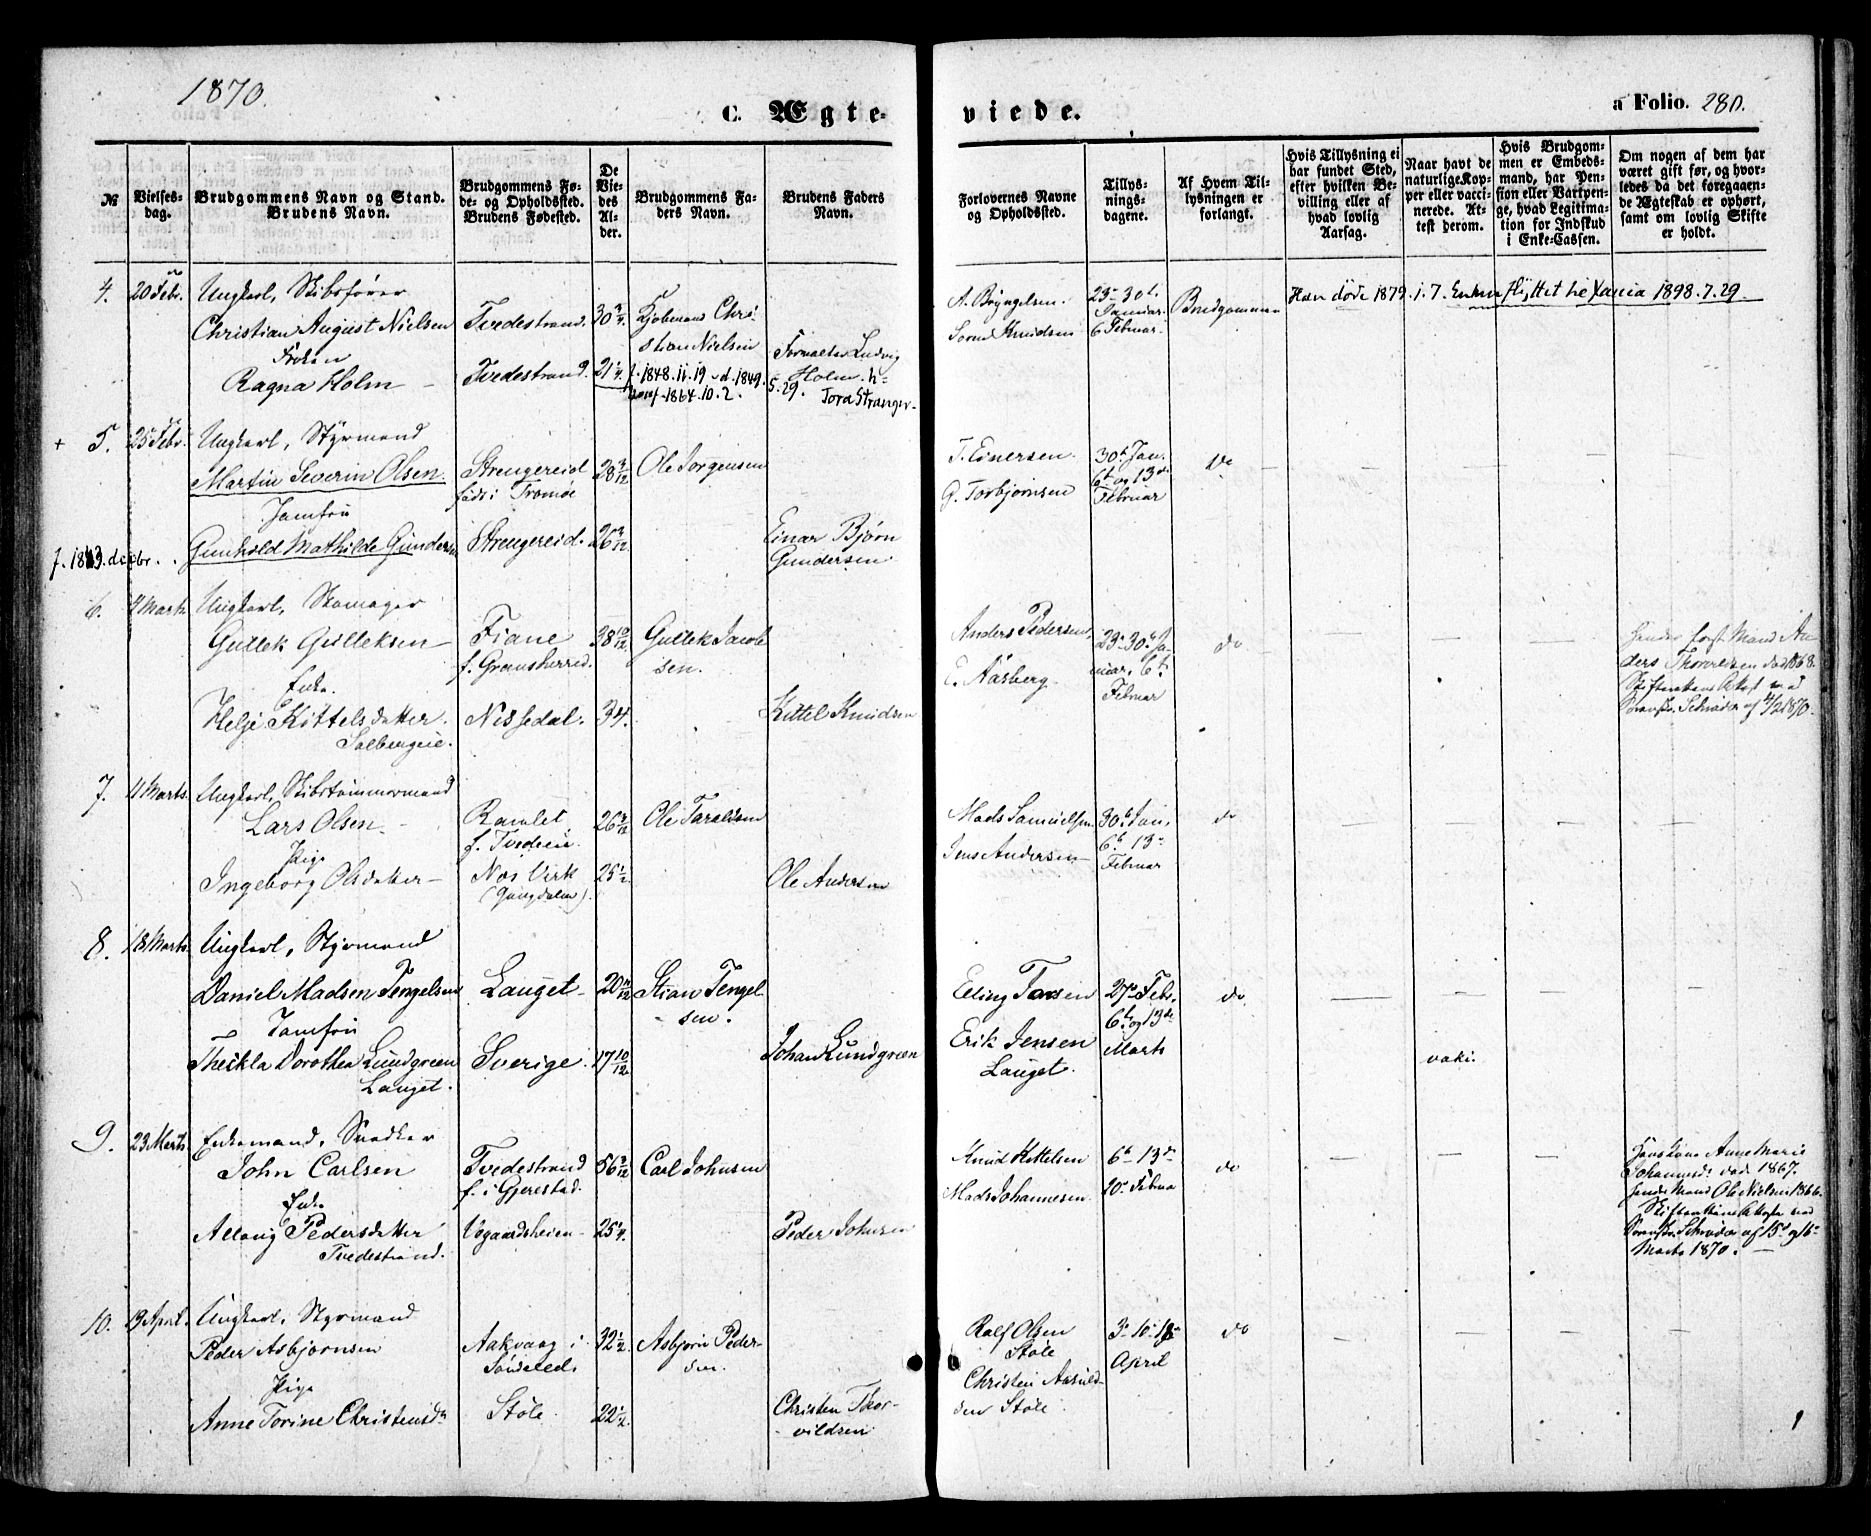 1870.
C. Ægte-
viede.
a Folio. 280.
№
Vielses-
dag.
Brudgommens Navn og Stand.
Brudens Navn.
Brudgommens Fø-
de- og Opholdssted.
Brudens Fødested.
De
Vie-
des
Al-
der.
Brudgommens Fa-
ders Navn.
Brudens Faders
Navn.
Forlovernes Navne
og Opholdssted.
Tillys-
nings-
dagene.
Af Hvem Til-
lysningen er
forlangt.
Hvis Tillysning ei
har fundet Sted,
efter hvilken Be-
villing eller af
hvad lovlig
Aarsag.
Naar havt de
naturlige Kop-
per eller vacci-
nerede. At-
test derom.
Hvis Brudgom-
men er Embeds-
mand, har Pen-
sion eller Vartpen-
ge, hvad Legitima-
tion for Indskud
i Enke-Cassen.
Om nogen af dem har
været gift før, og hvor-
ledes da det foregaaen-
de Ægteskab er ophørt,
samt om lovlig Skifte
er holdt.
4. 20 Febr. Ungkarl, Skibsfører
Christian August Nielsen
Frøken
Ragna Holm
Tvedestrand.
Tvedestrand.
30 3/4.
21 1/4.
Kjøbmand Chri-
stian Nielsen
f. 1848.11.19 - d. 1849.5.29.
konf. 1864.10.2.
Ludvig
Holm. h-
Tora Stranger
A. Bøyngelsen.
Søren Knudsen
23- 30t
Januar.
6 Februar.
Brudgommen
Han døde 1879.1.7. Enken flyttet til Xania 1898.7.29.
+ 5. 25 Febr. Ungkarl, Styrmand
Martin Severin Olsen.
Jomfru
Gunhild Mathilde Gunders
Strengereid
født i Tromøe
Strengereid.
28 3/12
26 3/12
Ole Jørgensen
Einar Bjørn
Gundersen.
T. Einersen.
G. Torbjørnsen
30t Jan.
6t og 13de
Februar
do
6. 4 Marts Ungkarl, Skomager
Gullek Gulleksen
Enke.
Helje Kittelsdatter
Solbergeie.
Fiane
f. Gransherred.
Nissedal.
38 10/12
34.
Gullek Jacob-
sen.
Kittel Knudsen
Anders Pedersen,
E. Aasberg.
23- 30t Ja-
nuar. 6t
Februar
do
Hendes forst Mand An-
ders Thorvaldsen død 1868.
Skifteattest
Sorenskr. Schrøder af 4/2 1870.
7. 11 Marts. Ungkarl, Skibstømmermand
Lars Olsen.
Pige
Ingeborg Olsdatter
Ramlet
f. Tvedeeie.
Næs Virk
(Gangdalen).
26 3/12
25 1/2
Ole Taraldsen
Ole Andersen
Mads Samuelsen
Jens Andersen
30t Jan.
6t 13-
Februar
do
8. 18 Marts Ungkarl, Styrmand
Daniel Madsen Tengelsen
Jomfru
Theckla Dorothea Lundgreen
Lauget.
Lauget
Sverige.
20 11/12
17 10/12
Stian Tengel-
sen.
Johan Lundgreen
Elling Tarsen
Erik Jensen
Lauget.
27- Febr.
6t og 13de
Marts
do
vaki.
9. 23 Marts. Enkemand, Snedker
John Carlsen
Enke
Allaug Pedersdatter
Tvedestrand.
Tvedestrand
f. i Gjerestad.
Vegaardsheien
56 3/12
25 1/4.
Carl Johnsen
Peder Johnsen
Knud Kittelsen
Mads Johannesen.
6t 13de
20- Februa
do
Hans Kone Anne Marie
Johannesd. død 1867.
hendes Mand Ole Nielsen 1866.
Sorenskr. Schrøder af 15de og 16-
Marts 1870.
10. 13 April. Ungkarl, Styrmand
Peder Asbjørnsen
Pige
Anne Torine Christensd
Aakvaag i
Søndeled
Støle.
32 1/2
22 1/2
Asbjørn Peder-
sen
Christen Thor-
vildsen
Ralf Olsen
Støle
Christen Asuld-
sen Støle.
3- 10- 18-
April
do